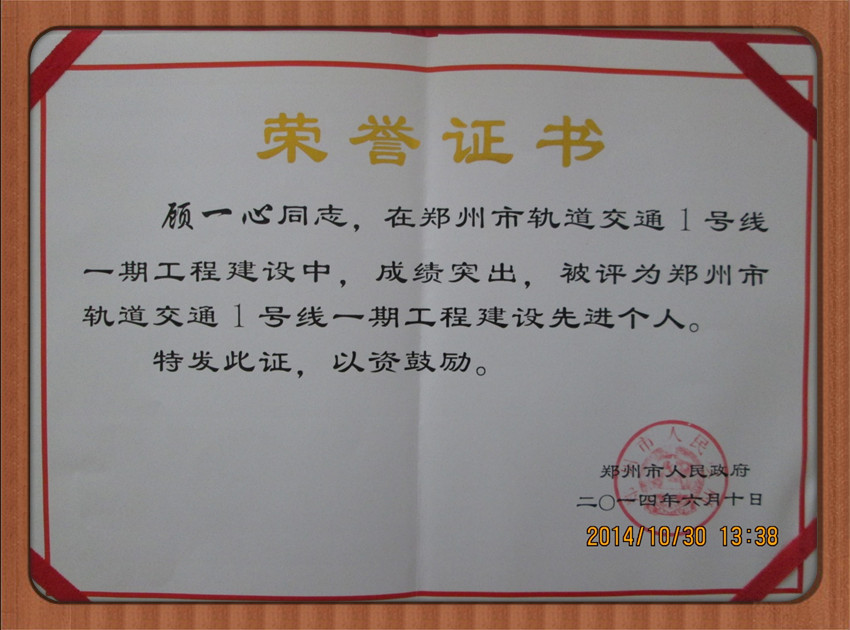 荣誉证书
顾一心同志，在郑州市轨道交通1号线
一期工程建设中，成绩突出，被评为郑州市
轨道交通1号线一期工程建设先进个人。
特发此证，以资鼓励。
市人民
郑州市人民政府
二〇一四年六月十日
2014/10/30 13:38